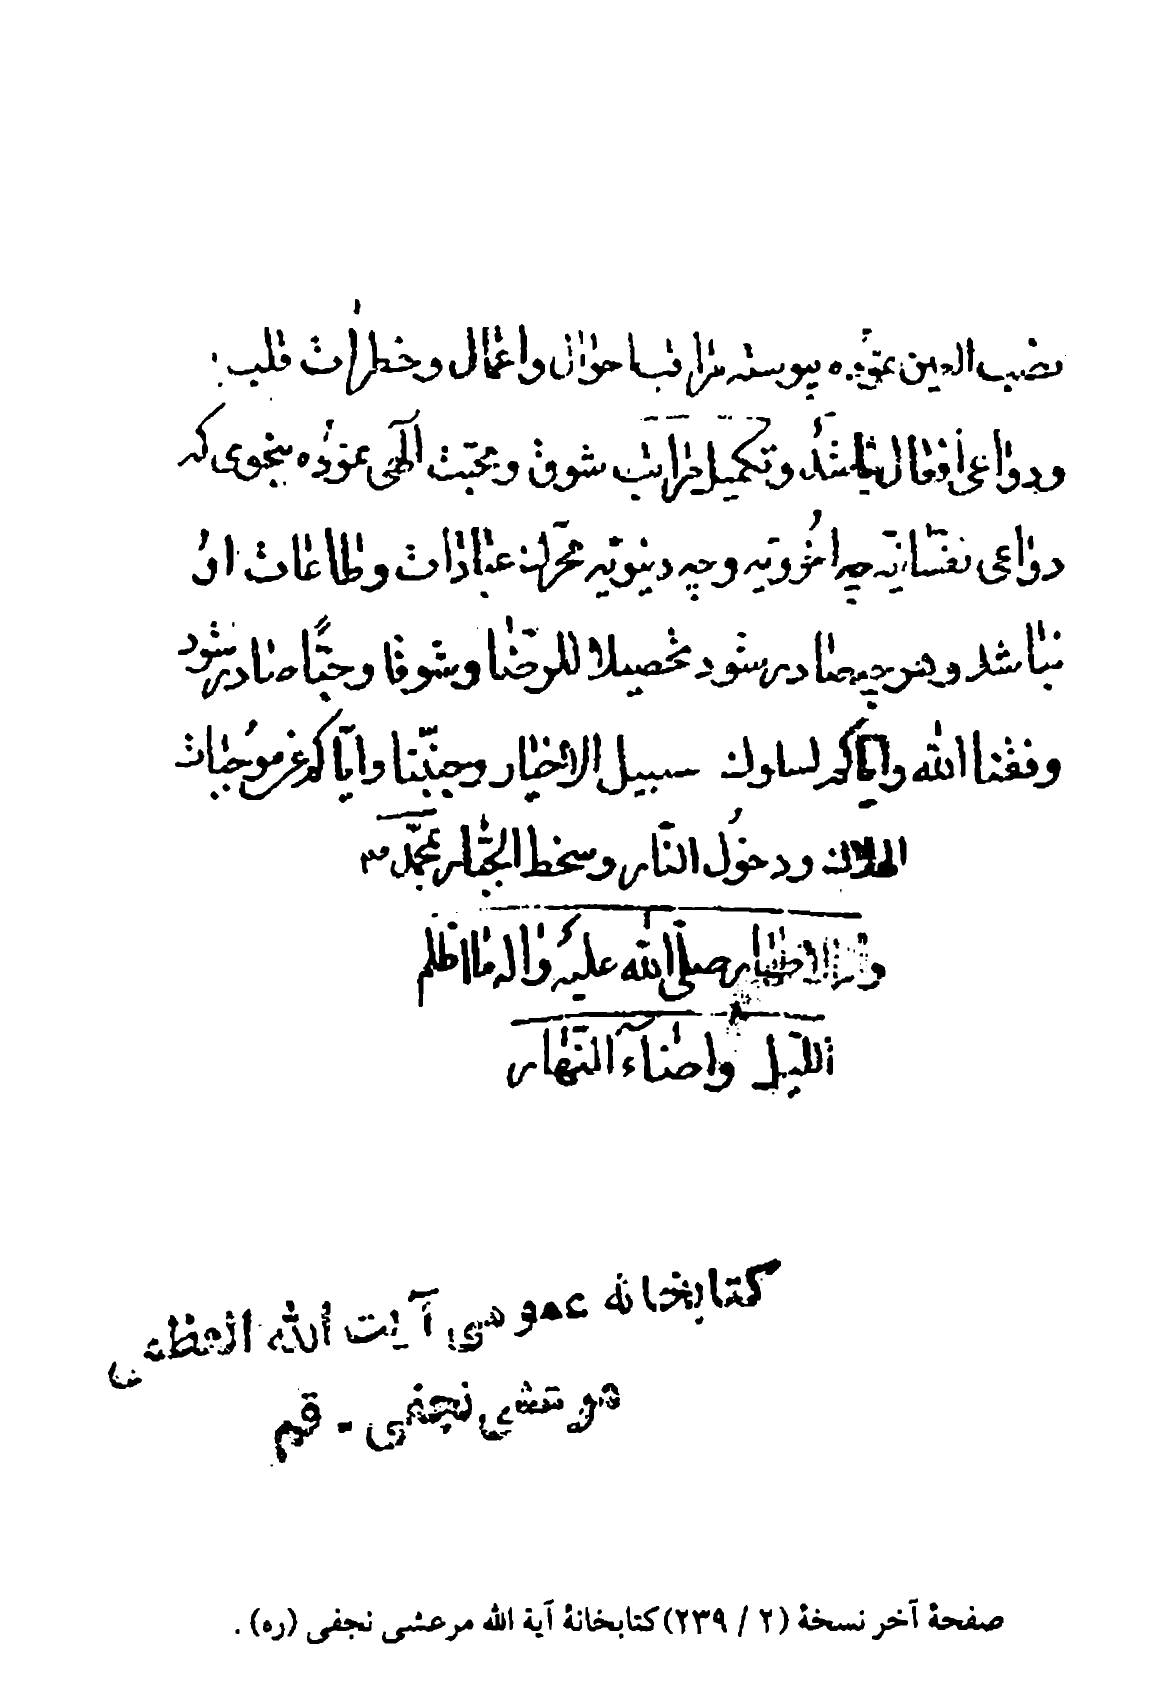 نصب العین نموده پیوسته مراقب احوال و اعمال و خطرات قلب
و دواعی افعال باشد و تکمیل مراتب شوق و محبت الهی نموده بنحوی که
دواعی نفسانیه چه اخرویه و چه دنیویه محرک عبادات و طاعات او
نباشد و هر چه صادر شود تحصیلا للرضا و شوقا و حبّا صادر شود
وفقنا الله وایاکم لسلوک سبیل الاخیار وجنّبنا وایاکم عن موجبات
الهلاک ودخول النّار وسخط الجبّار بمحمّد
واله الاطهار صلّی الله علیه واله ما اظلم
اللّیل واضاء النّهار
کتابخانه عمومی آیت الله العظمی
مرعشی نجفی - قم
صفحهٔ آخر نسخهٔ (۲ / ۲۳۹) کتابخانهٔ آیة الله مرعشی نجفی (ره) .